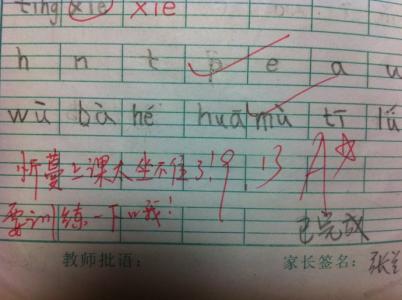 ting xie xie
h n t p e a u
wū bà hé huā mù tī lǘ
忻蔓上课太坐不住了! 9.13 A☆
要训练一下哦!
已完成
教师批语: 家长签名: 张兰